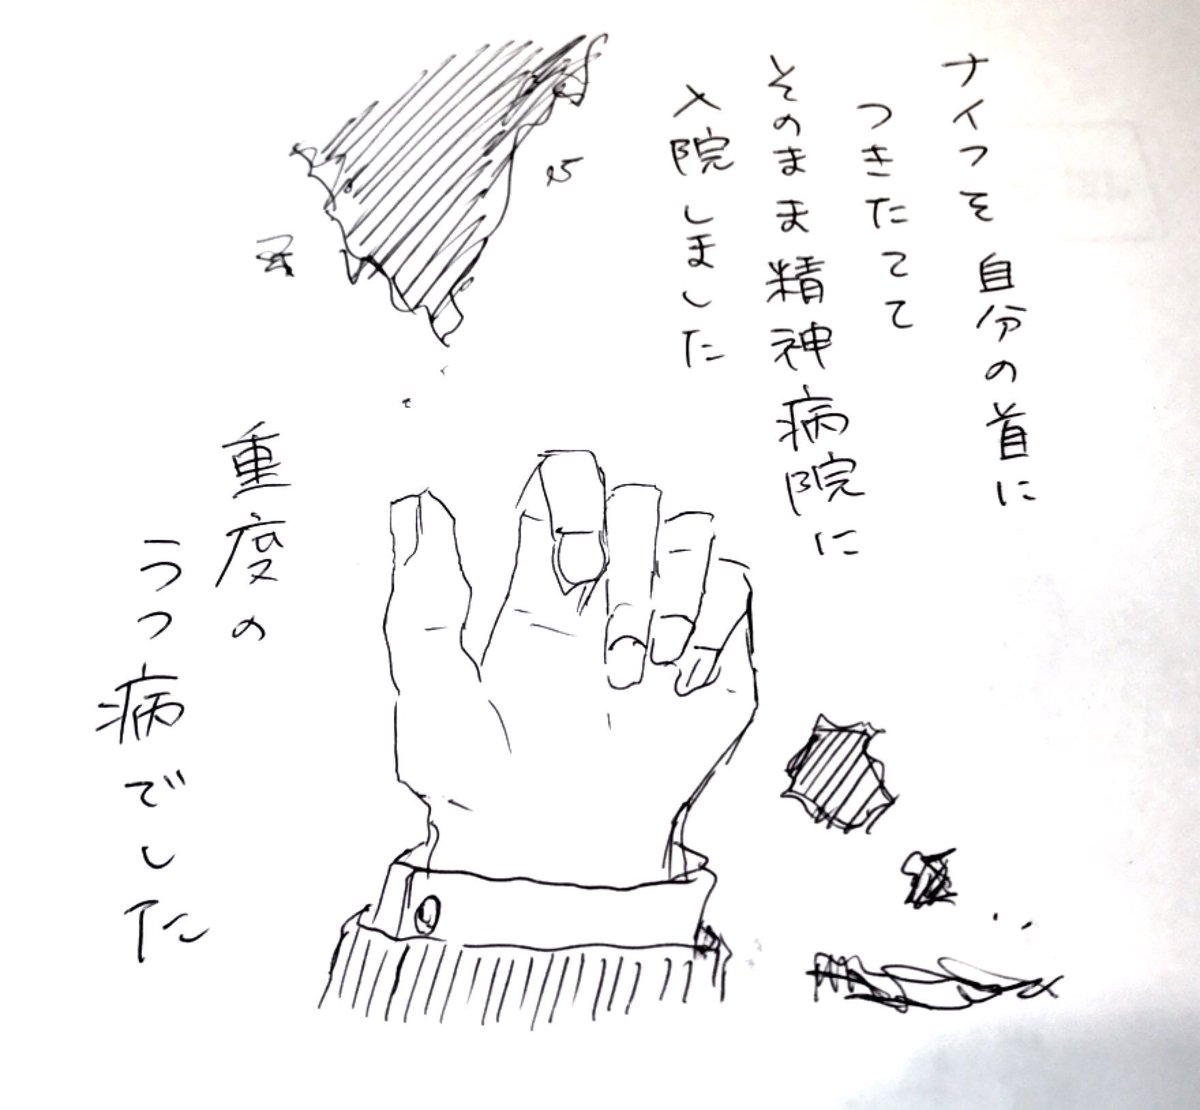 ナイフを自分の首に
つきたてて
そのまま精神病院に
入院しました
重度の
うつ病でした